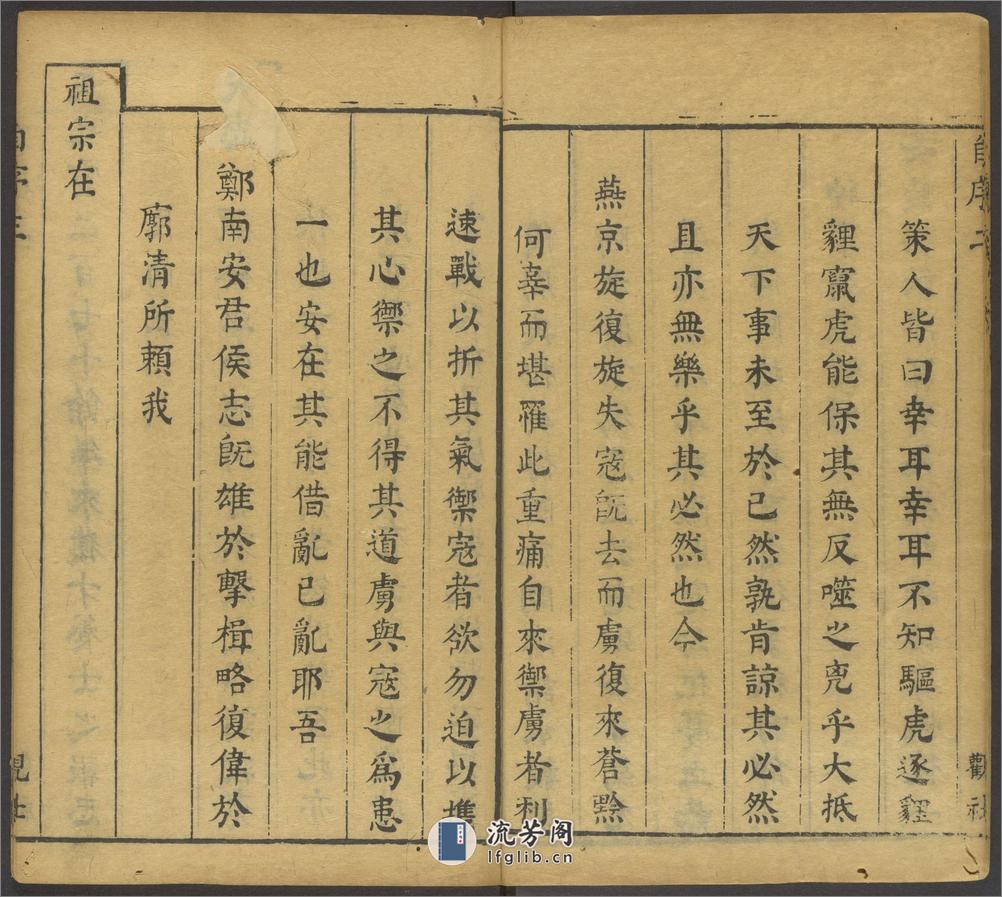 自序 二
觀社
策人皆曰幸耳幸耳不知驅虎逐貍
貍竄虎能保其無反噬之兇乎大抵
天下事未至於已然孰肯諒其必然
且亦無樂乎其必然也今
燕京旋復旋失寇旣去而虜復來蒼黔
何辜而堪罹此重痛自來禦虜者利
速戰以折其氣禦寇者欲勿迫以攜
其心禦之不得其道虜與寇之爲患
一也安在其能借亂已亂耶吾
鄭南安君侯志旣雄於擊楫略復偉於
廓清所賴我
祖宗在
流芳阁
lfglib.cn